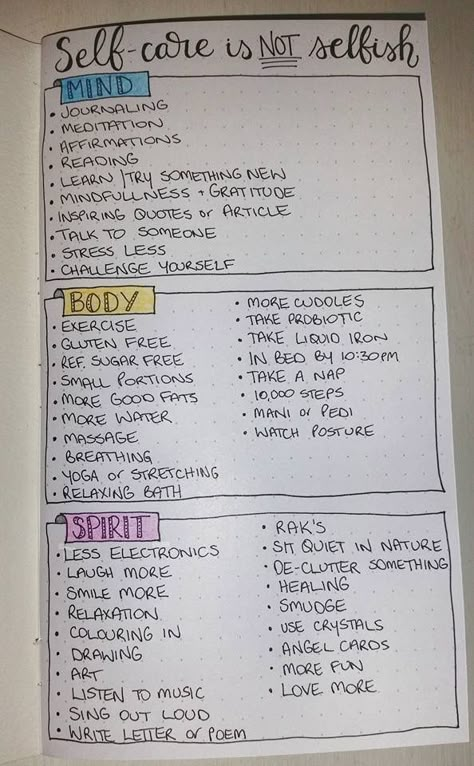 Self-care is NOT selfish
MIND
• JOURNALING
• MEDITATION
• AFFIRMATIONS
• READING
• LEARN / TRY SOMETHING NEW
• MINDFULLNESS + GRATITUDE
• INSPIRING QUOTES or ARTICLE
• TALK TO SOMEONE
• STRESS LESS
• CHALLENGE YOURSELF
BODY
• EXERCISE
• GLUTEN FREE
• REF. SUGAR FREE
• SMALL PORTIONS
• MORE GOOD FATS
• MORE WATER
• MASSAGE
• BREATHING
• YOGA or STRETCHING
• RELAXING BATH
• MORE CUDDLES
• TAKE PROBIOTIC
• TAKE LIQUID IRON
• IN BED BY 10:30PM
• TAKE A NAP
• 10,000 STEPS
• MANI or PEDI
• WATCH POSTURE
SPIRIT
• LESS ELECTRONICS
• LAUGH MORE
• SMILE MORE
• RELAXATION
• COLOURING IN
• DRAWING
• ART
• LISTEN TO MUSIC
• SING OUT LOUD
• WRITE LETTER or POEM
• RAK'S
• SIT QUIET IN NATURE
• DE-CLUTTER SOMETHING
• HEALING
• SMUDGE
• USE CRYSTALS
• ANGEL CARDS
• MORE FUN
• LOVE MORE